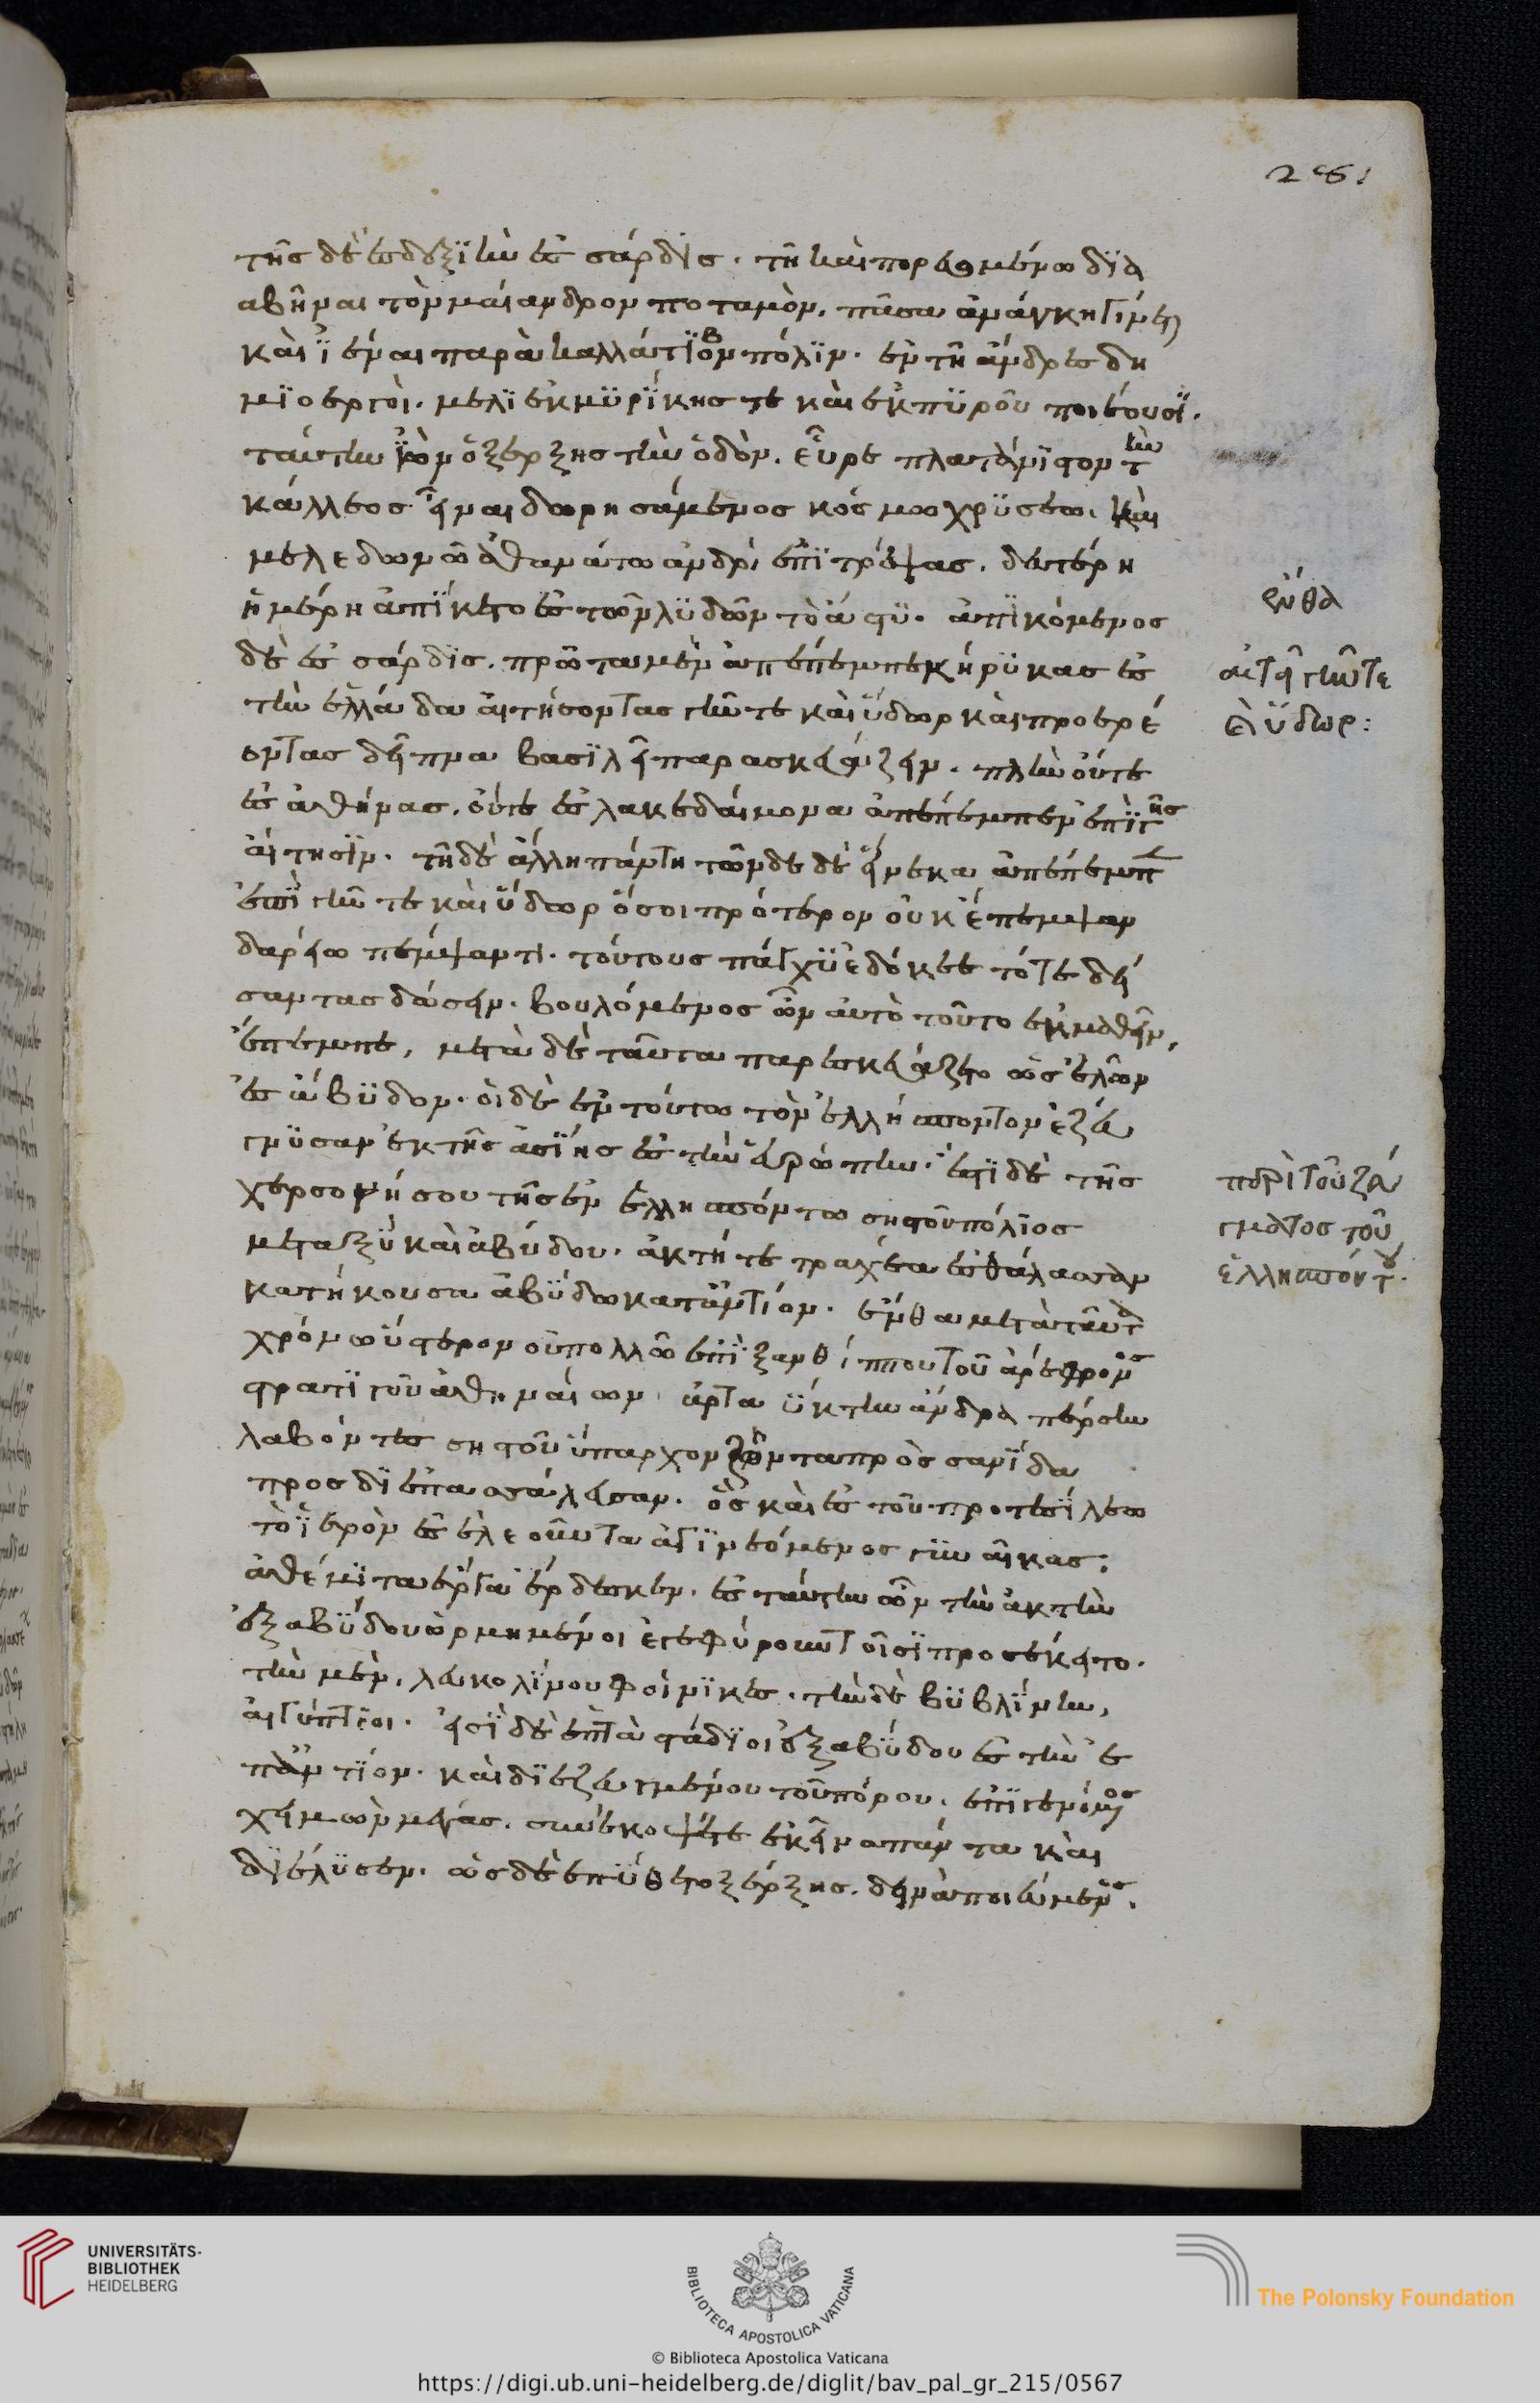 τῆς δὲ ἐς δεξϊὴν ἐς σάρδϊς. τῆ καὶ πορευομένω δϊα
αβῆναι τὸν μαίανδρον ποταμὸν, πᾶσα ἀνάγκη γίνεται
καὶ ϊέναι παρὰ καλλάτϊβον πόλϊν. ἐν τῆ ἄνδρες δη
μϊοεργοὶ. μέλϊ ἐκ μϋρΐκης τε καὶ ἐκ πϋροῦ ποιέουσϊ.
ταύτην ϊὼν ὁ ξέρξης τὴν ὁδὸν. εὗρε πλατάνϊστον τὴν
κάλλεος εἵναι δωρησάμενος κόσμω χρϋσέω. καὶ
μελεδωνῶ ἀθανάτω ἀνδρὶ ἐπϊτρέψας. δευτέρη
ἡμέρη ἀπΐκετο ἐς τῶν λϋδῶν τὸ ἄστϋ. ἀπϊκόμενος
δὲ ἐς σάρδϊς. πρῶτα μὲν ἀπέπεμπε κήρϋκας ἐς
τὴν ἑλλάδα αἰτήσοντας γῆν τε καὶ ὕδωρ καὶ προερέ
οντας δεῖπνα βασϊλεῖ παρασκευάζειν. πλὴν οὔτε
ἐς ἀθήνας. οὔτε ἐς λακεδαίμονα ἀπέπεμπεν ἐπϊ γῆς
αἴτησϊν. τῆ δὲ ἄλλη πάντη τῶνδε δὲ εἵνεκα ἀπέπεμπε
ἐπϊ γῆν τε καὶ ὕδωρ ὅσοι πρότερον οὐκ ἔπεμψαν
δαρείω πέμψαντι. τούτους πάγχϋ ἐδόκεε τότε δεί
σαντας δώσειν. βουλόμενος ὦν αὐτὸ τοῦτο ἐκμαθεῖν,
ἔπεμπε, μετὰ δὲ ταῦτα παρεσκευάζετο ὡς ἐλῶν
ἐς ἄβϋδον. οἱ δὲ ἐν τούτω τὸν ἑλλήσποντον ἐζεύ
γνϋσαν ἐκ τῆς ἀσΐης ἐς τὴν εὐρώπην. ἔστϊ δὲ τῆς
χερσονήσου τῆς ἐν ἑλλησπόντω σηστοῦ πόλϊος
μεταξὺ καὶ ἀβύδου. ἀκτή τε τραχέα ἐς θάλασσαν
κατήκουσα ἀβϋδω καταντίον. ἔνθα μετὰ ταῦτα
χρόνω ὕστερον οὐ πολλῶ ἐπϊ ξανθίππου τοῦ ἀρέφρονος
στρατϊγοῦ ἀθηναίων ἀρταϋκτην ἄνδρα πέρσην
λαβόντες σηστοῦ ὕπαρχον ζῶντα πρὸς σανΐδα
προσδϊεπασσάλευσαν. ὃς καὶ ἐς τοῦ πρωτεσΐλεω
τὸ ϊερὸν ἐς ἐλεοῦντα ἀγϊνεόμενος γυναῖκας:
ἀθέμϊτα ἔργα ἔρδεσκεν. ἐς ταύτην ὦν τὴν ἀκτὴν
ἐξ αβϋδου ὁρμημένοι ἐγεφύρουν τοῖσϊ προσέκειτο.
τὴν μὲν, λευκολΐνου φοίνϊκες. τὴν δὲ βϋβλΐνην,
αἰγύπτϊοι. ἔστϊ δὲ ἑπτὰ στάδϊοι ἐξ αβϋδου ἐς τὴν ἀ
παντΐον. καὶ δϊεζευγμένου τοῦ πόρου. ἐπϊγενόμενος
χειμὼν μέγας. συνέκοψέ τε ἐκεῖνα πάντα καὶ
δϊέλϋσεν. ὡς δὲ ἐπΰθετο ξέρξης. δεινὰ ποιεύμενος.
281
ἔνθα
αἰτεῖ γῆν τε
καὶ ὕδωρ:
περὶ τοῦ ζεύ
γματος τοῦ
ἑλλησπόντου.
UNIVERSITÄTS-
BIBLIOTHEK
HEIDELBERG
BIBLIOTECA APOSTOLICA VATICANA
The Polonsky Foundation
© Biblioteca Apostolica Vaticana
https://digi.ub.uni-heidelberg.de/diglit/bav_pal_gr_215/0567